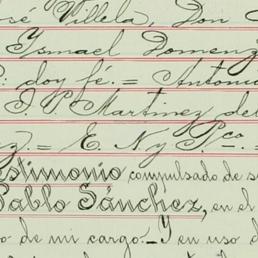 osé Villela, Don
Ysmael Domenz
: doy fé. = Antonio
J. P. Martinez del
ez,= E. N y P.co =
estimonio compulsado de s
Pablo Sánchez, en el
o de mi cargo._Y en uso d